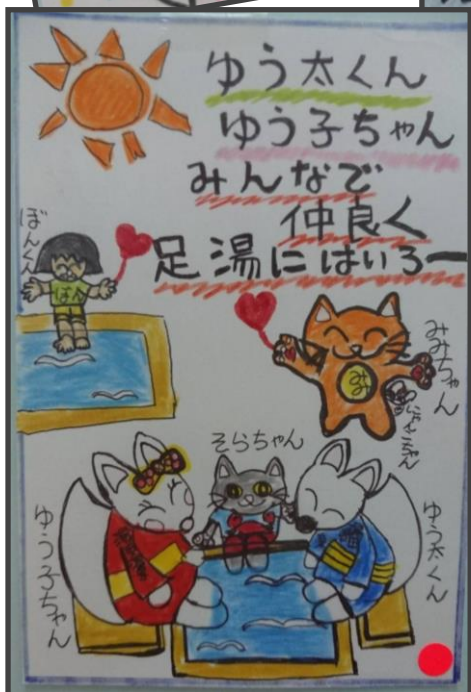 ゆう太くん
ゆう子ちゃん
みんなで
仲良く
足湯にはいろー
ぼんくん
みみちゃん
みみ
そらちゃん
ゆう子ちゃん
ゆう太くん